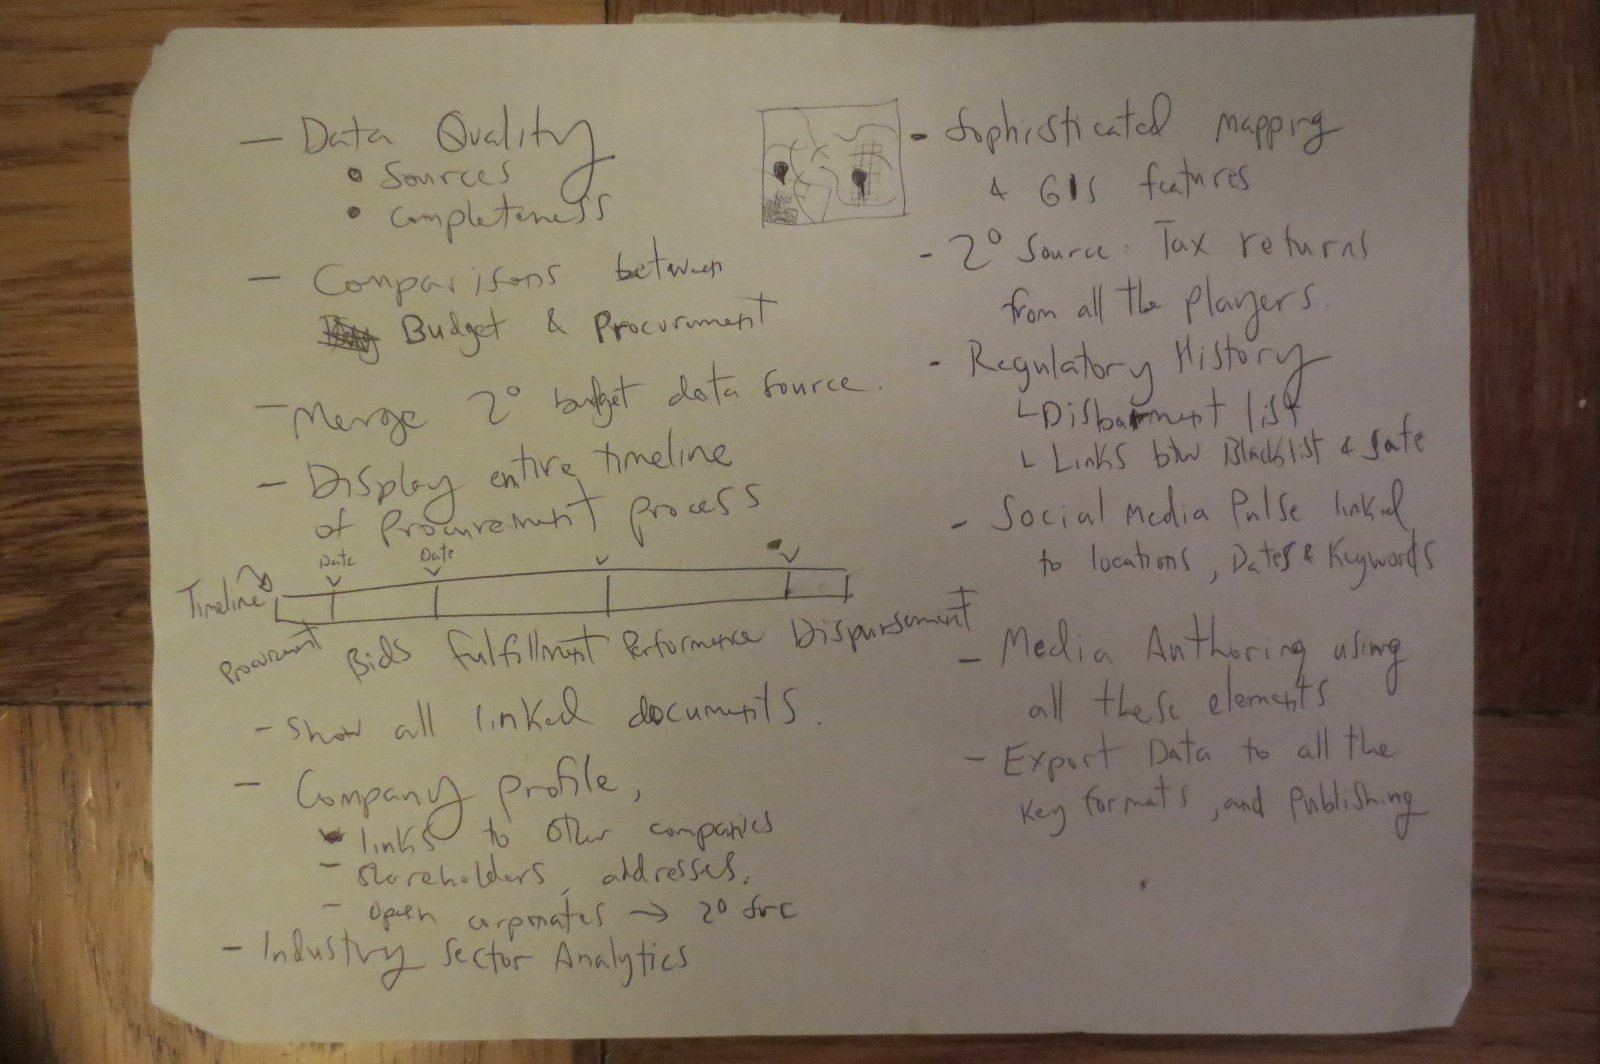 — Data Quality
• Sources
• Completeness
— Comparisons between
Budget & Procurment
— Merge 2° budget data source.
— Display entire timeline
of Procurement process
Date Date
Timeline
Procurment Bids Fulfillment Performance Dispursement
— Show all linked documents.
— Company profile,
links to other companies
— shareholders, addresses.
— open corporates → 2° src
— Industry Sector Analytics
- Sophisticated mapping
& GIS features
- 2° Source: Tax returns
from all the players.
- Regulatory History
└ Disbarment list
└ Links btw Blacklist & safe
- Social Media Pulse linked
to locations, Dates & Keywords
— Media Authoring using
all these elements
— Export Data to all the
Key formats, and publishing